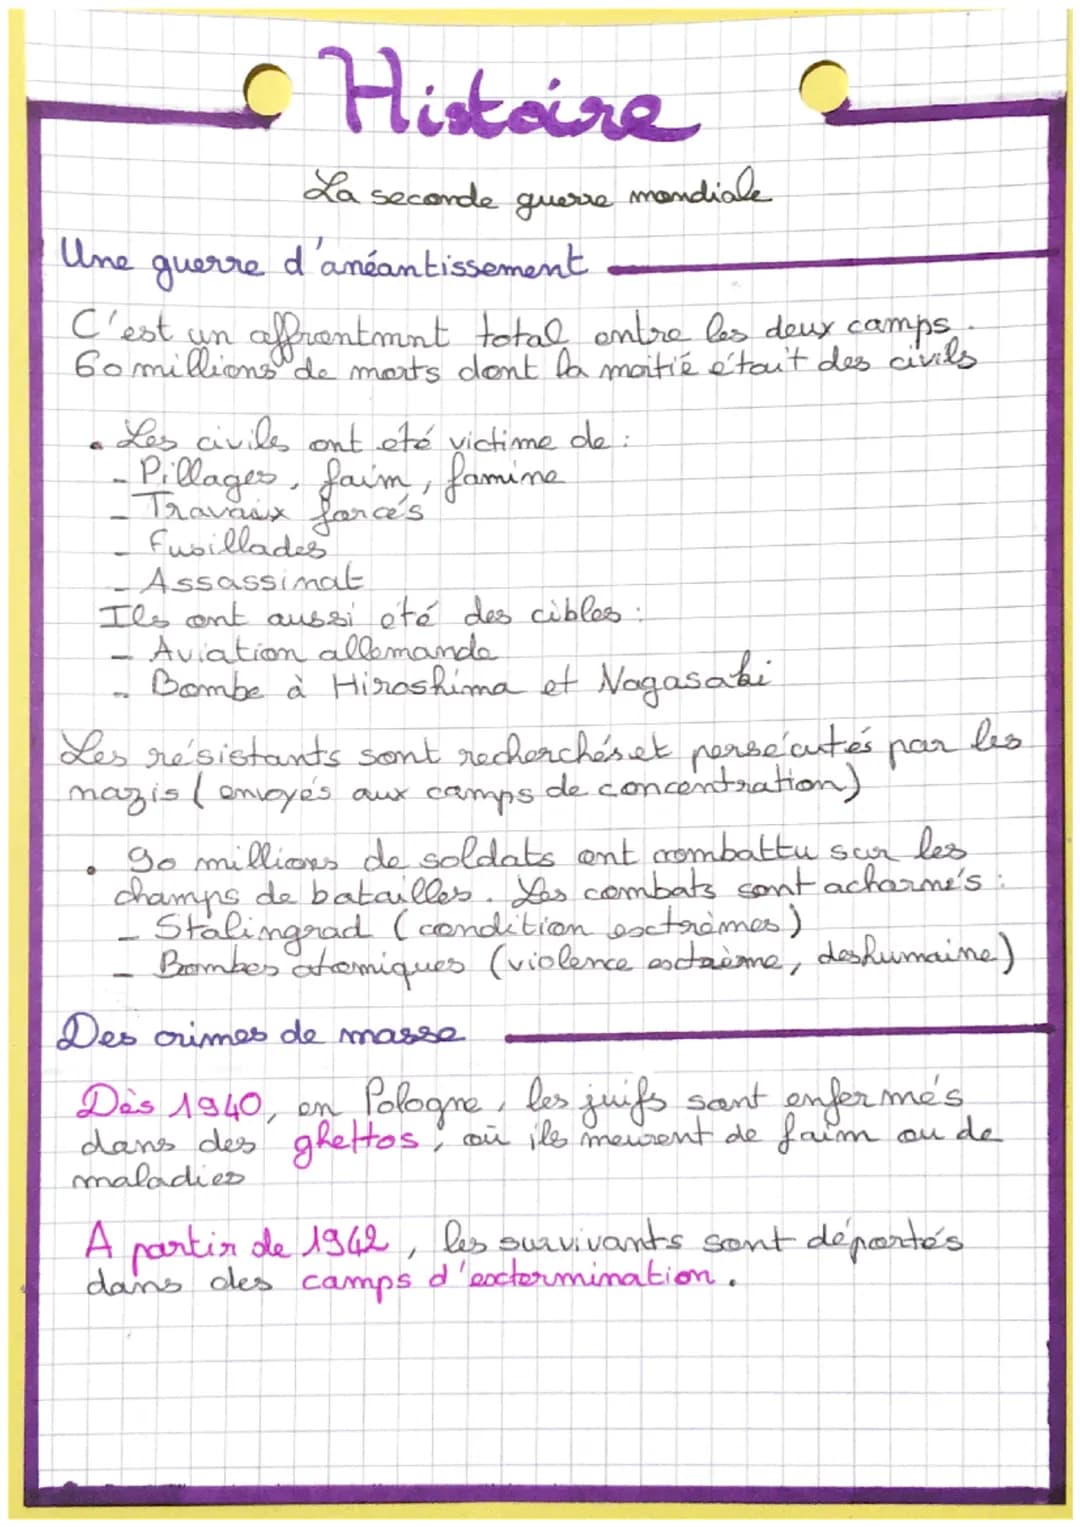 Histoire
La seconde guerre mondiale
Une guerre d'anéantissement
C'est un affrontmnt total entre les deux camps.
60 millions de morts dont la moitié étout des civils
• Les civils ont été victime de :
- Pillages, faim, famine
- Travaux forcés
- Fusillades
- Assassinat
Ils ont aussi été des cibles :
- Aviation allemande
- Bombe à Hiroshima et Nagasaki
Les résistants sont recherchés et persécutés par les
nazis (envoyés aux camps de concentration)
• 90 millions de soldats ont combattu sur les
champs de batailles. Les combats sont acharnés :
- Stalingrad (condition extrêmes)
- Bombes atomiques (violence extrême, deshumaine)
Des crimes de masse
Dès 1940, en Pologne, les juifs sont enfermés
dans des ghettos, où ils meurent de faim ou de
maladies
A partir de 1942, les survivants sont déportés
dans des camps d'extermination.